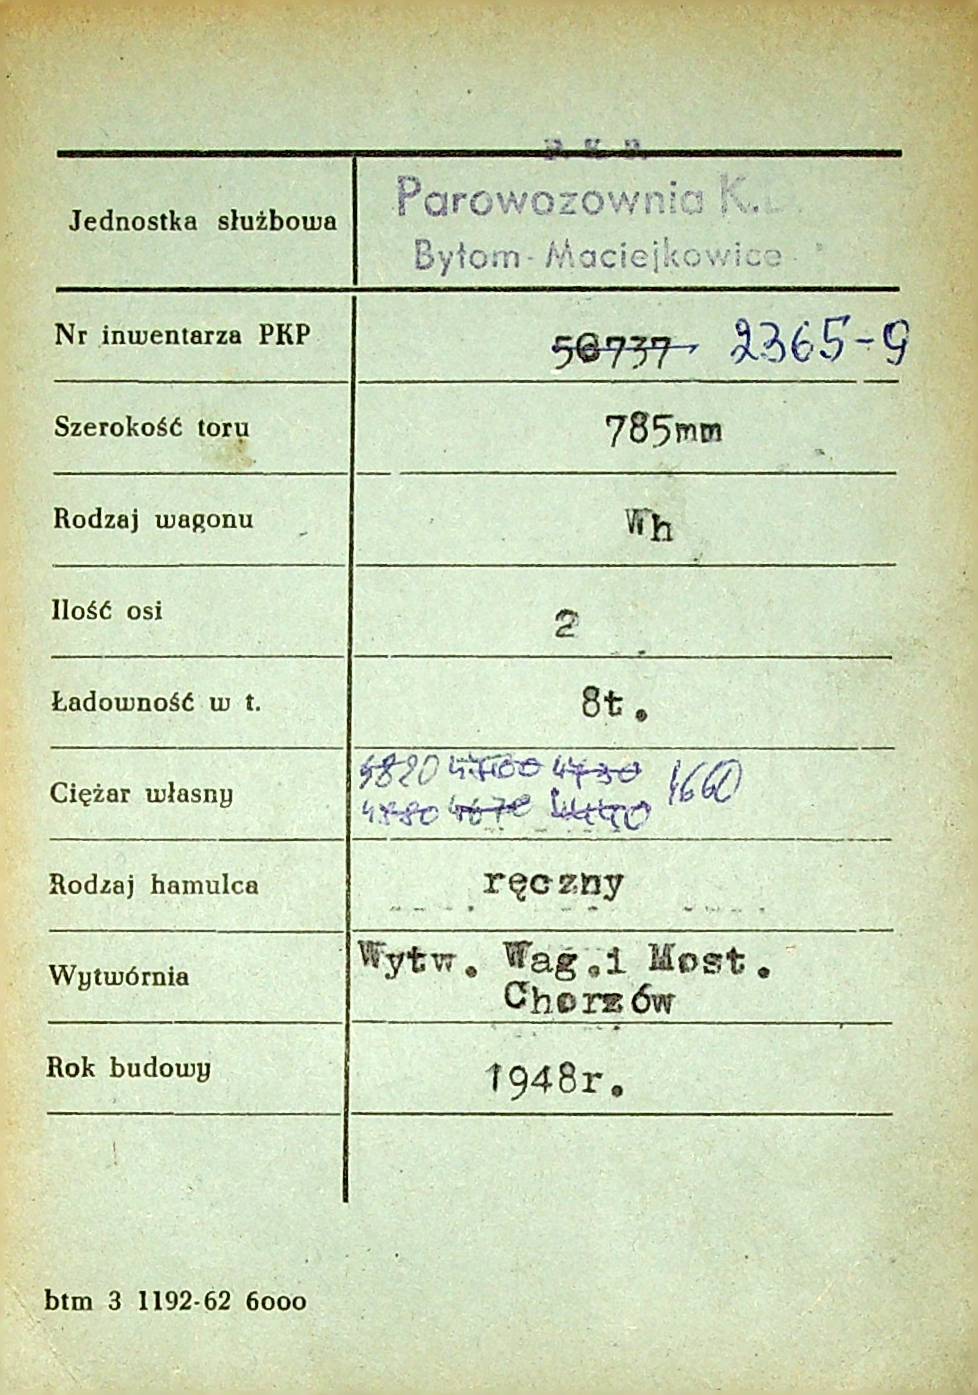 P. K. P.
Parowozownia K.D.
Jednostka służbowa
Bytom-Maciejkowice
Nr inwentarza PKP 56737 2365-9
Szerokość toru 785mm
Rodzaj wagonu Wh
Ilość osi 2
Ładowność w t. 8t.
4820 4700 4730
Ciężar własny 4660
4670
Rodzaj hamulca ręczny
Wytw. Wag.i Most.
Wytwórnia
Chorzów
Rok budowy 1948r.
btm 3 1192-62 6ooo